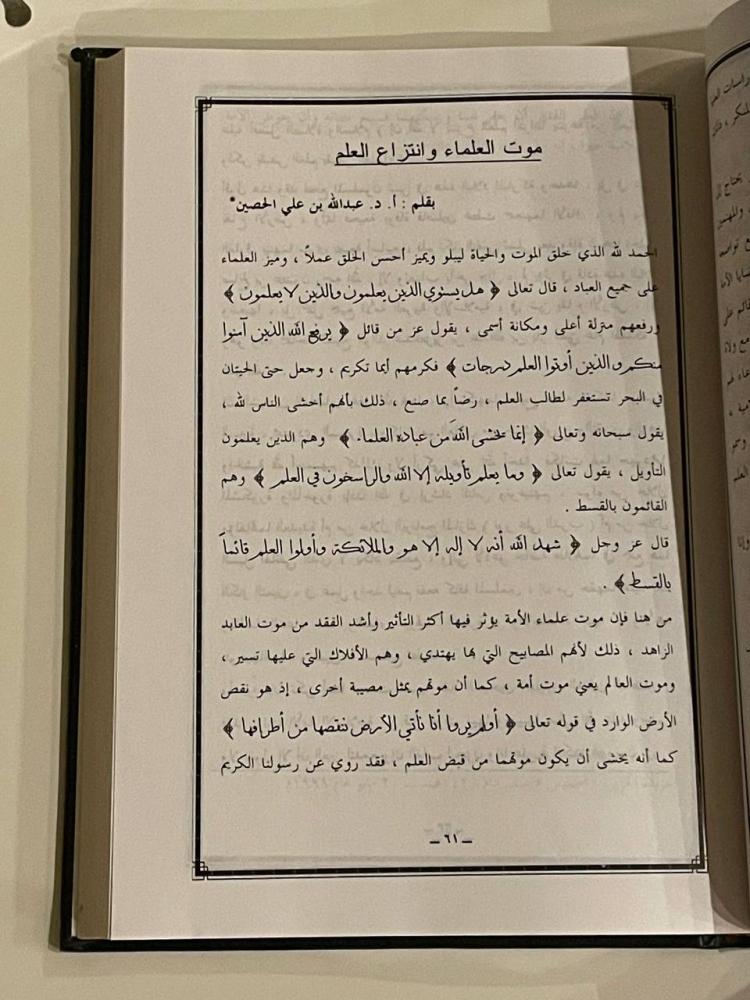 موت العلماء وانتزاع العلم
بقلم : أ. د. عبدالله بن علي الحصين*
الحمد لله الذي خلق الموت والحياة ليبلو ويميز أحسن الخلق عملاً ، وميز العلماء
على جميع العباد ، قال تعالى ﴿ هل يستوي الذين يعلمون والذين لا يعلمون ﴾
ورفعهم منزلة أعلى ومكانة أسمى ، بقول عز من قائل ﴿ يرفع الله الذين آمنوا
منكم والذين أوتوا العلم درجات ﴾ فكرمهم أيما تكريم ، وجعل حتى الحيتان
في البحر تستغفر لطالب العلم ، رضاً بما صنع ، ذلك بألهم أخشى الناس لله ،
يقول سبحانه وتعالى ﴿ إنما يخشى الله من عباده العلماء ﴾ وهم الذين يعلمون
التأويل ، يقول تعالى ﴿ وما يعلم تأويله إلا الله والراسخون في العلم ﴾ وهم
القائمون بالقسط .
قال عز وجل ﴿ شهد الله أنه لا إله إلا هو والملائكة وأولوا العلم قائماً
بالقسط ﴾ .
من هنا فإن موت علماء الأمة يؤثر فيها أكثر التأثير وأشد الفقد من موت العابد
الزاهد ، ذلك لأنهم المصابيح التي بها يهتدي ، وهم الأفلاك التي عليها تسير ،
وموت العالم يعني موت أمة ، كما أن موتهم يمثل مصيبة أخرى ، إذ هو نقص
الأرض الوارد في قوله تعالى ﴿ أولم يروا أنا نأتي الأرض ننقصها من أطرافها ﴾
كما أنه يخشى أن يكون موتهما من قبض العلم ، فقد روي عن رسولنا الكريم
ــ ٦١ ــ